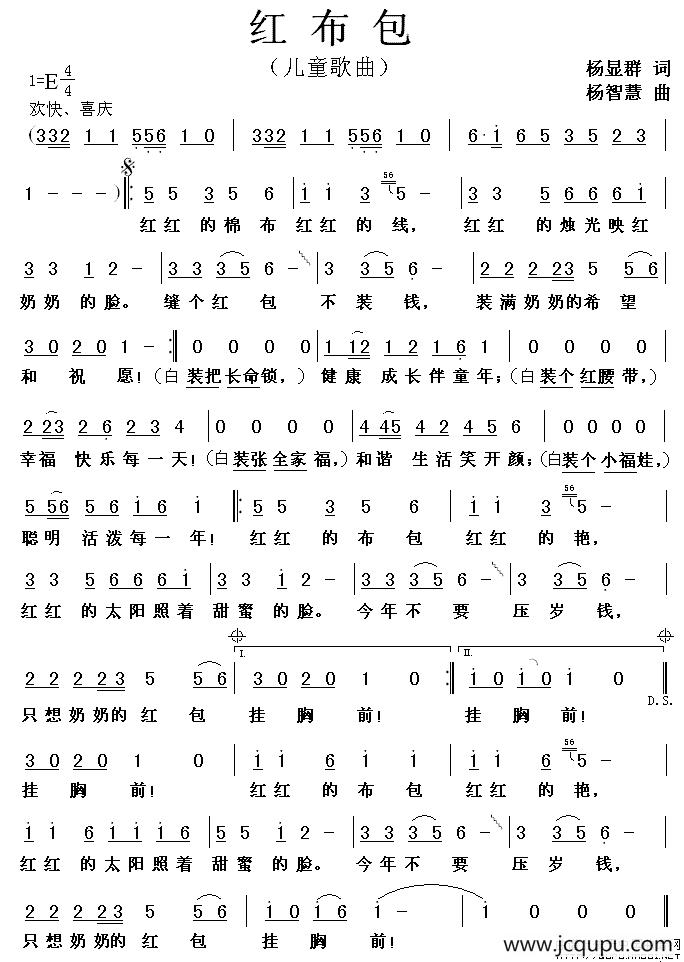 红布包
（儿童歌曲）
杨显群 词
1=E 4/4
杨智慧 曲
欢快、喜庆
(332 1 1 556 1 0 | 332 1 1 556 1 0 | 6· i 6 5 3 5 2 3 |
1 - - - ) 𝄋 ‖: 5 5 3 5 6 | i i 3 56 5 - | 3 3 5 6 6 6 i |
红红 的棉 布 红红 的 线， 红红 的烛光映红
3 3 1 2 - | 3 3 3 5 6 - | 3 3 5 6 - | 2 2 2 23 5 5 6 |
奶奶 的 脸。 缝个 红 包 不 装 钱， 装满奶奶的希 望
3 0 2 0 1 - :‖ 0 0 0 0 | 1 12 2 1 2 6 1 | 0 0 0 0 |
和 祝 愿！（白 装把长命锁，） 健康 成长伴童年；（白装个红腰带，）
2 23 2 6 2 3 4 | 0 0 0 0 | 4 45 4 2 4 5 6 | 0 0 0 0 |
幸福 快乐每一天！（白装张全家 福，）和谐 生活笑开颜；（白装个小福娃，）
5 56 5 6 i 6 i ‖: 5 5 3 5 6 | i i 3 56 5 - |
聪明 活泼每一 年！ 红红 的 布 包 红红 的 艳，
3 3 5 6 6 6 i | 3 3 1 2 - | 3 3 3 5 6 - | 3 3 5 6 - |
红红 的太阳照着 甜蜜 的脸。今年不 要 压 岁 钱，
I. II.
2 2 2 23 5 5 6 | 3 0 2 0 1 0 :‖ i 0 i 0 i 0 ‖
D.S.
只想奶奶的 红 包 挂 胸 前！ 挂 胸 前！
3 0 2 0 1 0 | i i 6 i i | i i 3 56 5 - |
挂 胸 前！ 红红 的 布 包 红红 的 艳，
i i 6 i i i i | 5 5 3 2 - | 3 3 3 5 6 - | 3 3 5 6 - |
红红 的太阳照着 甜蜜 的脸。今年不 要 压 岁 钱，
2 2 2 23 5 5 6 | i 0 i 0 i 6 | i - - - | i 0 0 0 ‖
只想奶奶的 红 包 挂 胸 前！
www.jcqupu.com